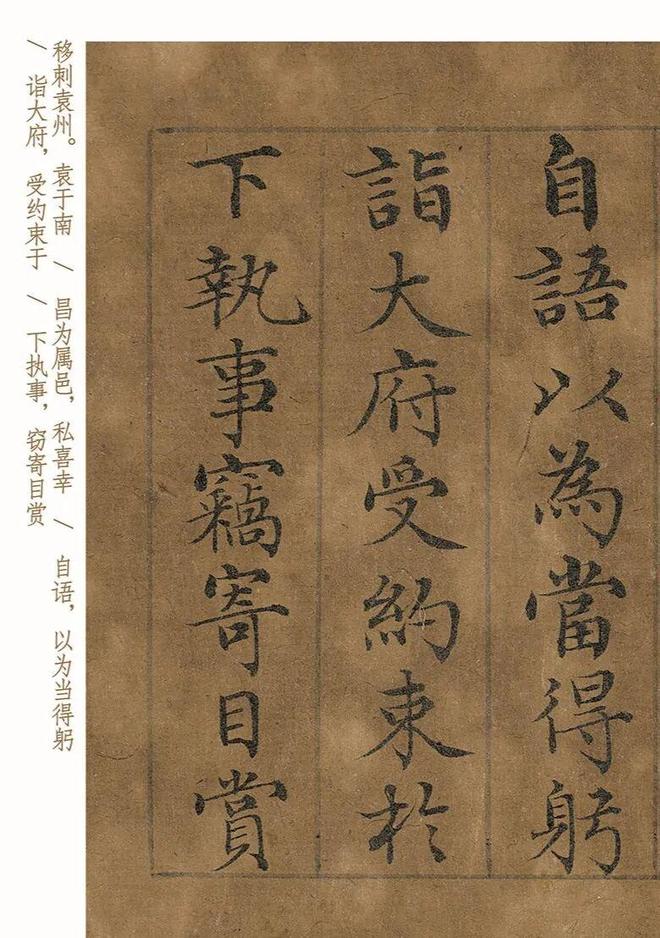 自語以為當得躬
詣大府受約束於
下執事竊寄目賞
移刺袁州。袁于南 / 昌为属邑，私喜幸 / 自语，以为当得躬
/ 诣大府，受约束于 / 下执事，窃寄目赏